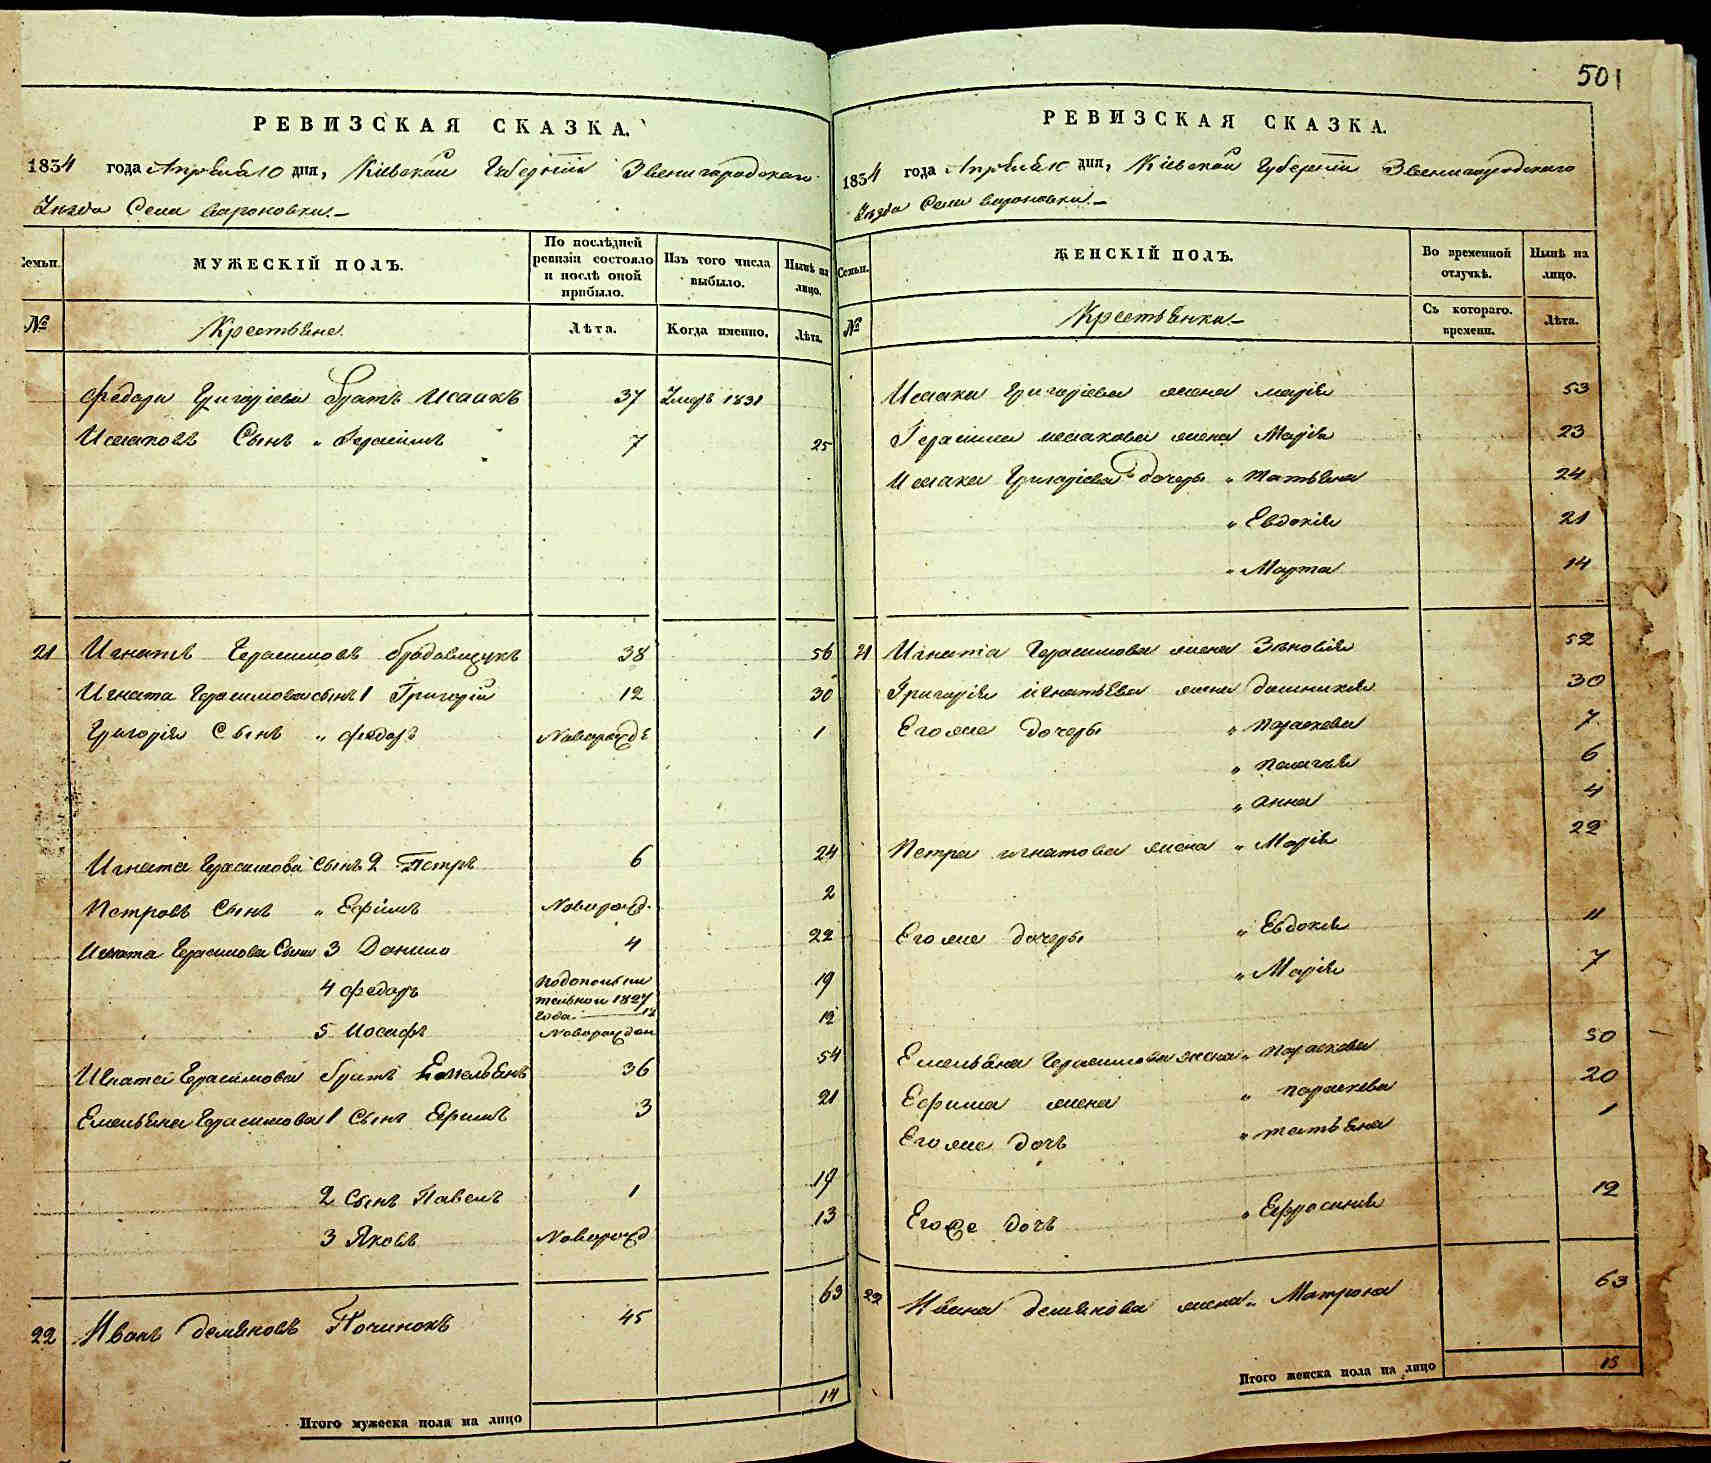 501
РЕВИЗСКАЯ СКАЗКА.
1834 года Апреля 10 дня, Кіевской Губерніи Звенигородского
Уезда Села Вороновки.
Семьи. МУЖЕСКІЙ ПОЛЪ. По послѣдней ревизіи состояло и послѣ оной прибыло. Изъ того числа выбыло. Нынѣ на лицо.
№ Крестьяне. Лѣта. Когда именно. Лѣта.
Федора Григоріева братъ Исаакъ 37 Умеръ 1831
Исааковъ Сынъ " Герасимъ 7 25
21 Игнатъ Герасимовъ 38 56
Игната Герасимова сынъ 1 Григорій 12 30
Григорія Сынъ " Федоръ Новорожд 1
Игната Герасимова Сынъ 2 Петръ 6 24
Петровъ Сынъ " Ефимъ Новорожд. 2
Игната Герасимова Сыны 3 Данило 4 22
4 Федоръ 1827 года 12 19
5 Иосифъ Новорожден 12
Игната Герасимова братъ Емельянъ 36 54
Емельяна Герасимова 1 Сынъ Ефимъ 3 21
2 Сынъ Павелъ 1 19
3 Яковъ Новорожд 13
22 Иванъ Демяновъ Починокъ 45 63
Итого мужеска пола на лицо 14
РЕВИЗСКАЯ СКАЗКА.
1834 года Апреля 10 дня, Кіевской Губерніи Звенигородского
Уезда Села Вороновки.
Семьи. ЖЕНСКІЙ ПОЛЪ. Во временной отлучкѣ. Нынѣ на лицо.
№ Крестьянки Съ котораго. времени. Лѣта.
Исаака Григоріева жена Марія 53
Герасима Исакова жена Марія 23
Исаака Григоріева дочери " Татьяна 24
" Евдокія 21
" Марта 14
21 Игнатіа Герасимова жена Зѣновія 52
Григорія Игнатьева жена Домникія 30
Его же дочери " Параскева 7
" Пелагія 6
" Анна 4
Петра Игнатова жена " Марія 22
Его же дочеры " Евдокія 11
" Марія 7
Емельяна Герасимова жена " Параскева 50
Ефима жена " Параскева 20
Его же дочь " Татьяна 1
Его же дочь " Ефросинія 12
22 Ивана Демянова жена " Матрона 63
Итого женска пола на лицо 15